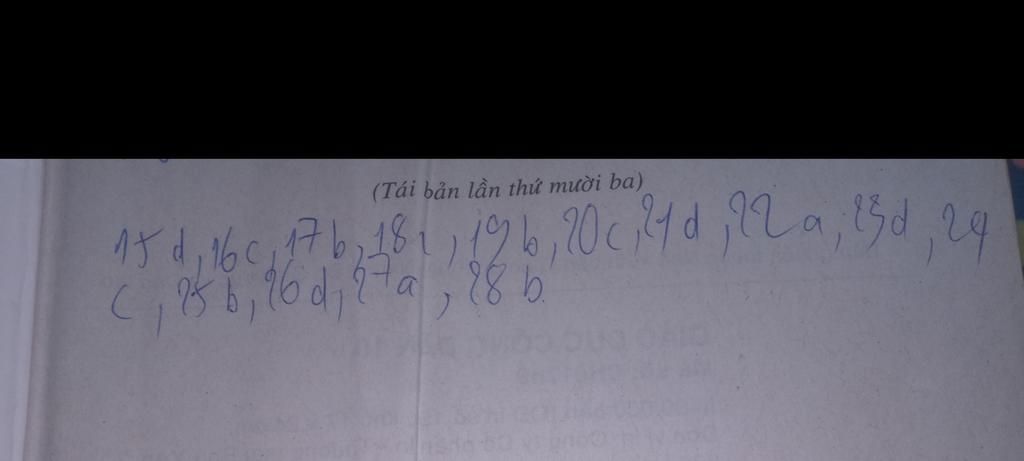 (Tái bản lần thứ mười ba)
15 d, 16 c, 17 b, 18 c, 19 b, 20 c, 21 d, 22 a, 23 d, 24
c, 25 b, 26 d, 27 a, 28 b.